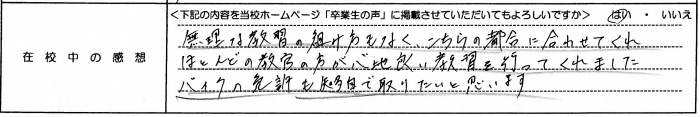 <下記の内容を当校ホームページ「卒業生の声」に掲載させていただいてもよろしいですか> はい ・ いいえ
在校中の感想
無理な教習の組み方もなく、こちらの都合に合わせてくれ
ほとんどの教官の方が心地良い教習を行ってくれました
バイクの免許も で取りたいと思います